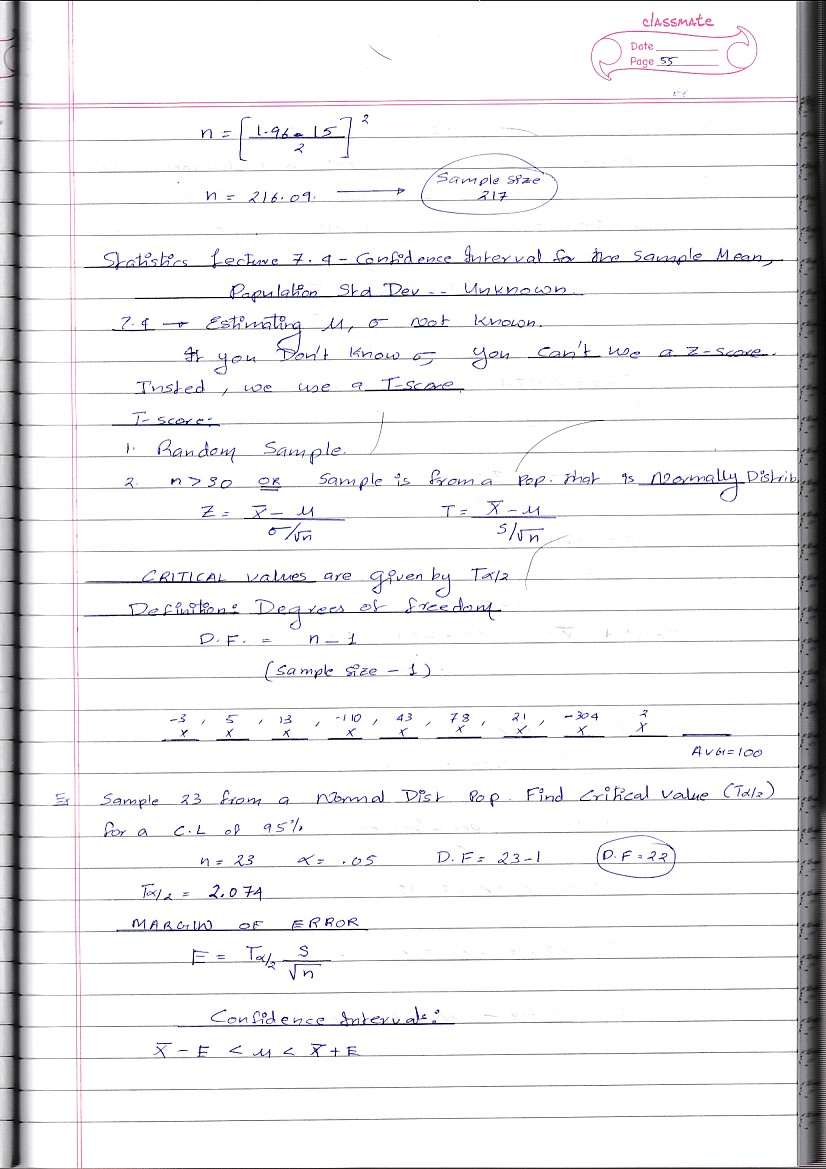 classmate
Date
Page 55
n = [1.96 · 15 / 2]²
n = 216.09. → Sample size 217
Statistics Lecture 7.4 - Confidence Interval for the Sample Mean,
Population Std Dev -- Unknown
7.4 → Estimating μ, σ not known.
If you Don't know σ, you can't use a Z-score.
Insted, we use a T-score
T-score:
1. Random Sample.
2. n > 30 OR Sample is from a Pop. that is Normally Distrib
Z = x̄ - μ / σ/√n T = x̄ - μ / s/√n
CRITICAL values are given by Tα/2
Definition: Degrees of freedom
D.F. = n - 1
(Sample size - 1)
-3, 5, 13, -110, 43, 78, 21, -304 2
x x x x x x x x x
AVG = 100
Ex Sample 23 from a Normal Dist Pop. Find Critical value (Tα/2)
for a C.L of 95%
n = 23 α = .05 D.F = 23-1 D.F = 22
Tα/2 = 2.074
MARGIN OF ERROR
E = Tα/2 S/√n
Confidence Intervals:
x̄ - E < μ < x̄ + E